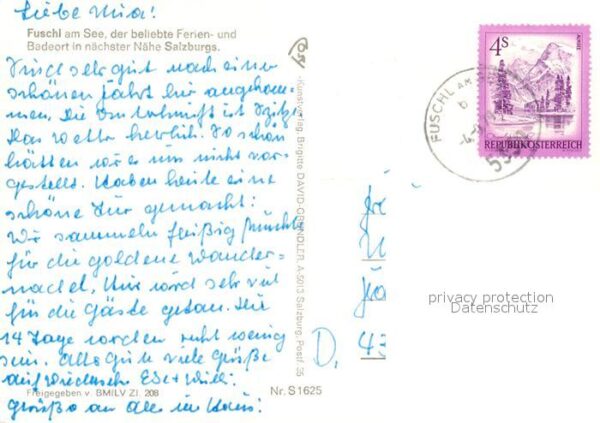 Liebe Mia!
Fuschl am See, der beliebte Ferien- und
Badeort in nächster Nähe Salzburgs.
Sind sehr gut nach einer
schönen Fahrt hier angekom-
men. Die Unterkunft ist Spitze
Das Wetter herrlich. So schön
hätten wir es uns nicht vor-
gestellt. Haben heute eine
schöne Tour gemacht.
Wir sammeln fleißig Punkte
für die goldene Wander-
nadel. Hier wird sehr viel
für die Gäste getan. Die
14 Tage werden recht wenig
sein. Alles Gute viele Grüße
auf Wiedersehn + Willi.
Freigegeben v. BMILV Zl. 208
Grüße an alle im Haus!
Nr. S 1625
Kunstverlag, Brigitte DAVID-GRÜNDLER, A-5013 Salzburg, Postf. 35
4 S
REPUBLIK ÖSTERREICH
FUSCHL AM
D.
43
privacy protection
Datenschutz